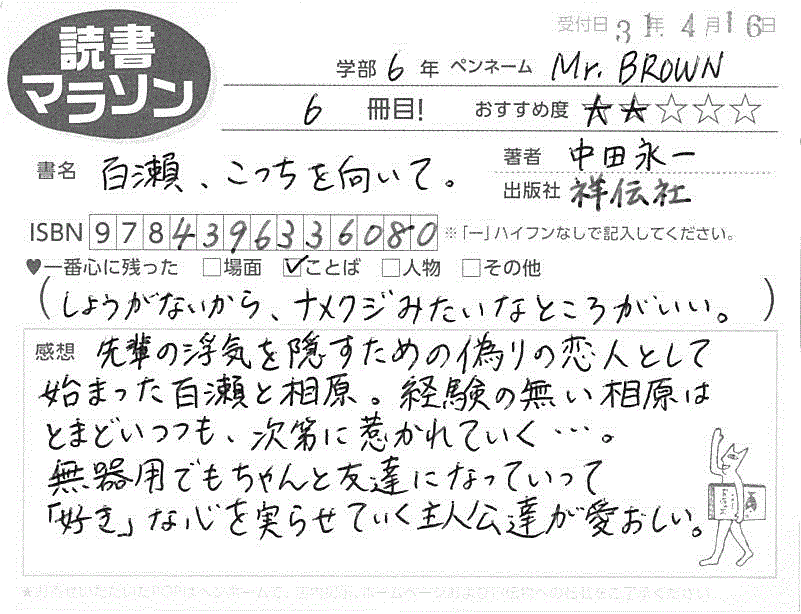 読書
マラソン
受付日 31年 4月 16日
学部 6 年 ペンネーム Mr. BROWN
6 冊目! おすすめ度 ★★☆☆☆
書名 百瀬、こっちを向いて。
著者 中田永一
出版社 祥伝社
ISBN 9784396336080 ※「ー」ハイフンなしで記入してください。
♥一番心に残った □場面 ☑ことば □人物 □その他
(しょうがないから、ナメクジみたいなところがいい。)
感想 先輩の浮気を隠すための偽りの恋人として
始まった百瀬と相原。経験の無い相原は
とまどいつつも、次第に惹かれていく…。
無器用でもちゃんと友達になっていって
「好き」な心を実らせていく主人公達が愛おしい。